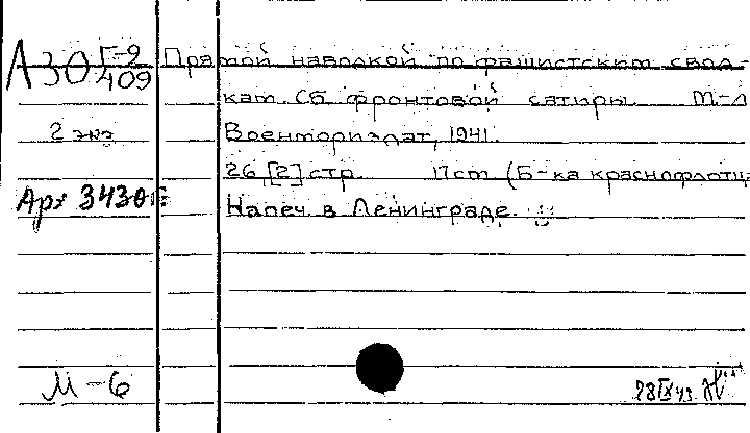 А30 Г-2
409
Прямой наводкой по фашистским свод-
кам. Сб фронтовой сатиры. М-Л
2 экз
Военмориздат, 1941.
26, [2] стр. 17 см (Б-ка краснофлотц
Арх 3430
Напеч. в Ленинграде.
М-6
28 IX 43